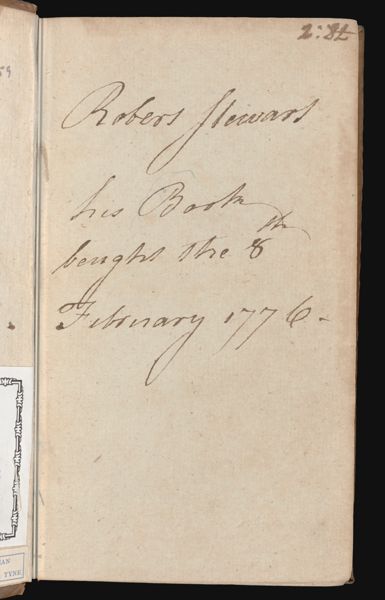 2:8d
Robert Stewart
his Book
bought the 8th
February 1776-
59
AN
TYNE